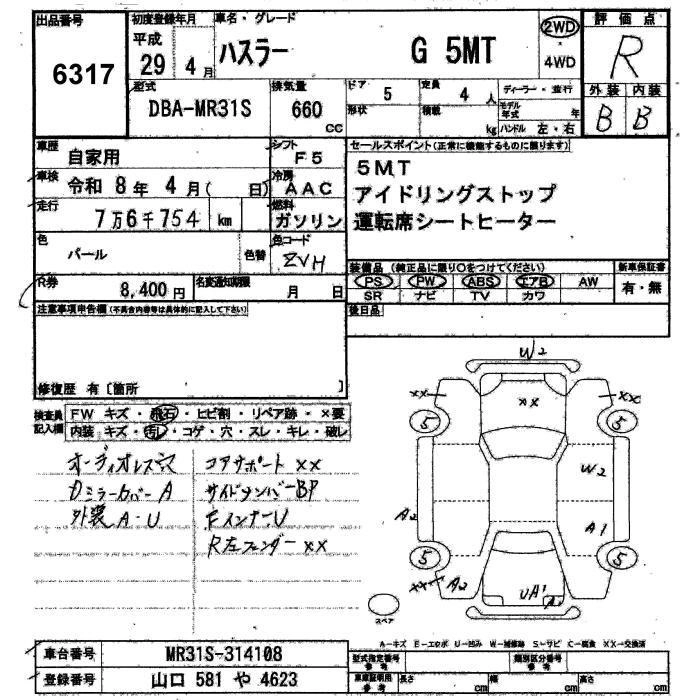 出品番号 初度登録年月 車名・グレード 2WD 評価点
6317 平成 29 4月 ハスラー G 5MT 4WD R
型式 排気量 ドア 5 定員 4人 ディーラー・並行 外装 内装
DBA-MR31S 660cc 形状 積載 kg モデル年式 年 ハンドル 左・右 B B
車歴 自家用 シフト F5 セールスポイント(正常に機能するものに限ります)
車検 令和 8年 4月( 日) 冷房 AAC 5MT
アイドリングストップ
走行 7万6千754 km 燃料 ガソリン 運転席シートヒーター
色 パール 色替 色コード ZVH
装備品 (純正品に限り○をつけてください) 新車保証書
R券 8,400円 名変通知期限 月 日 PS PW ABS エアB AW 有・無
SR ナビ TV カワ
注意事項申告欄(不具合内容等は具体的に記入して下さい) 後日品
修復歴 有〔箇所 〕
検査員記入欄 FW キズ・飛石・ヒビ割・リペア跡・×要
内装 キズ・汚レ・コゲ・穴・スレ・キレ・破レ
オーディオレス コアサポート XX
Dミラーカバー A サイドメンバー BP
外装 A・U Fインナー U
R左フェンダー XX
W2
XX XX XX
5 5
W2
A2 A1
5 5
XX A2 UA1 A1
スペア
A―キズ E―エクボ U―凹み W―補修跡 S―サビ C―腐食 XX―交換済
車台番号 MR31S-314108 型式指定番号 参考 類別区分番号 参考
登録番号 山口 581 や 4623 車庫証明用 参考 長さ cm 幅 cm 高さ cm